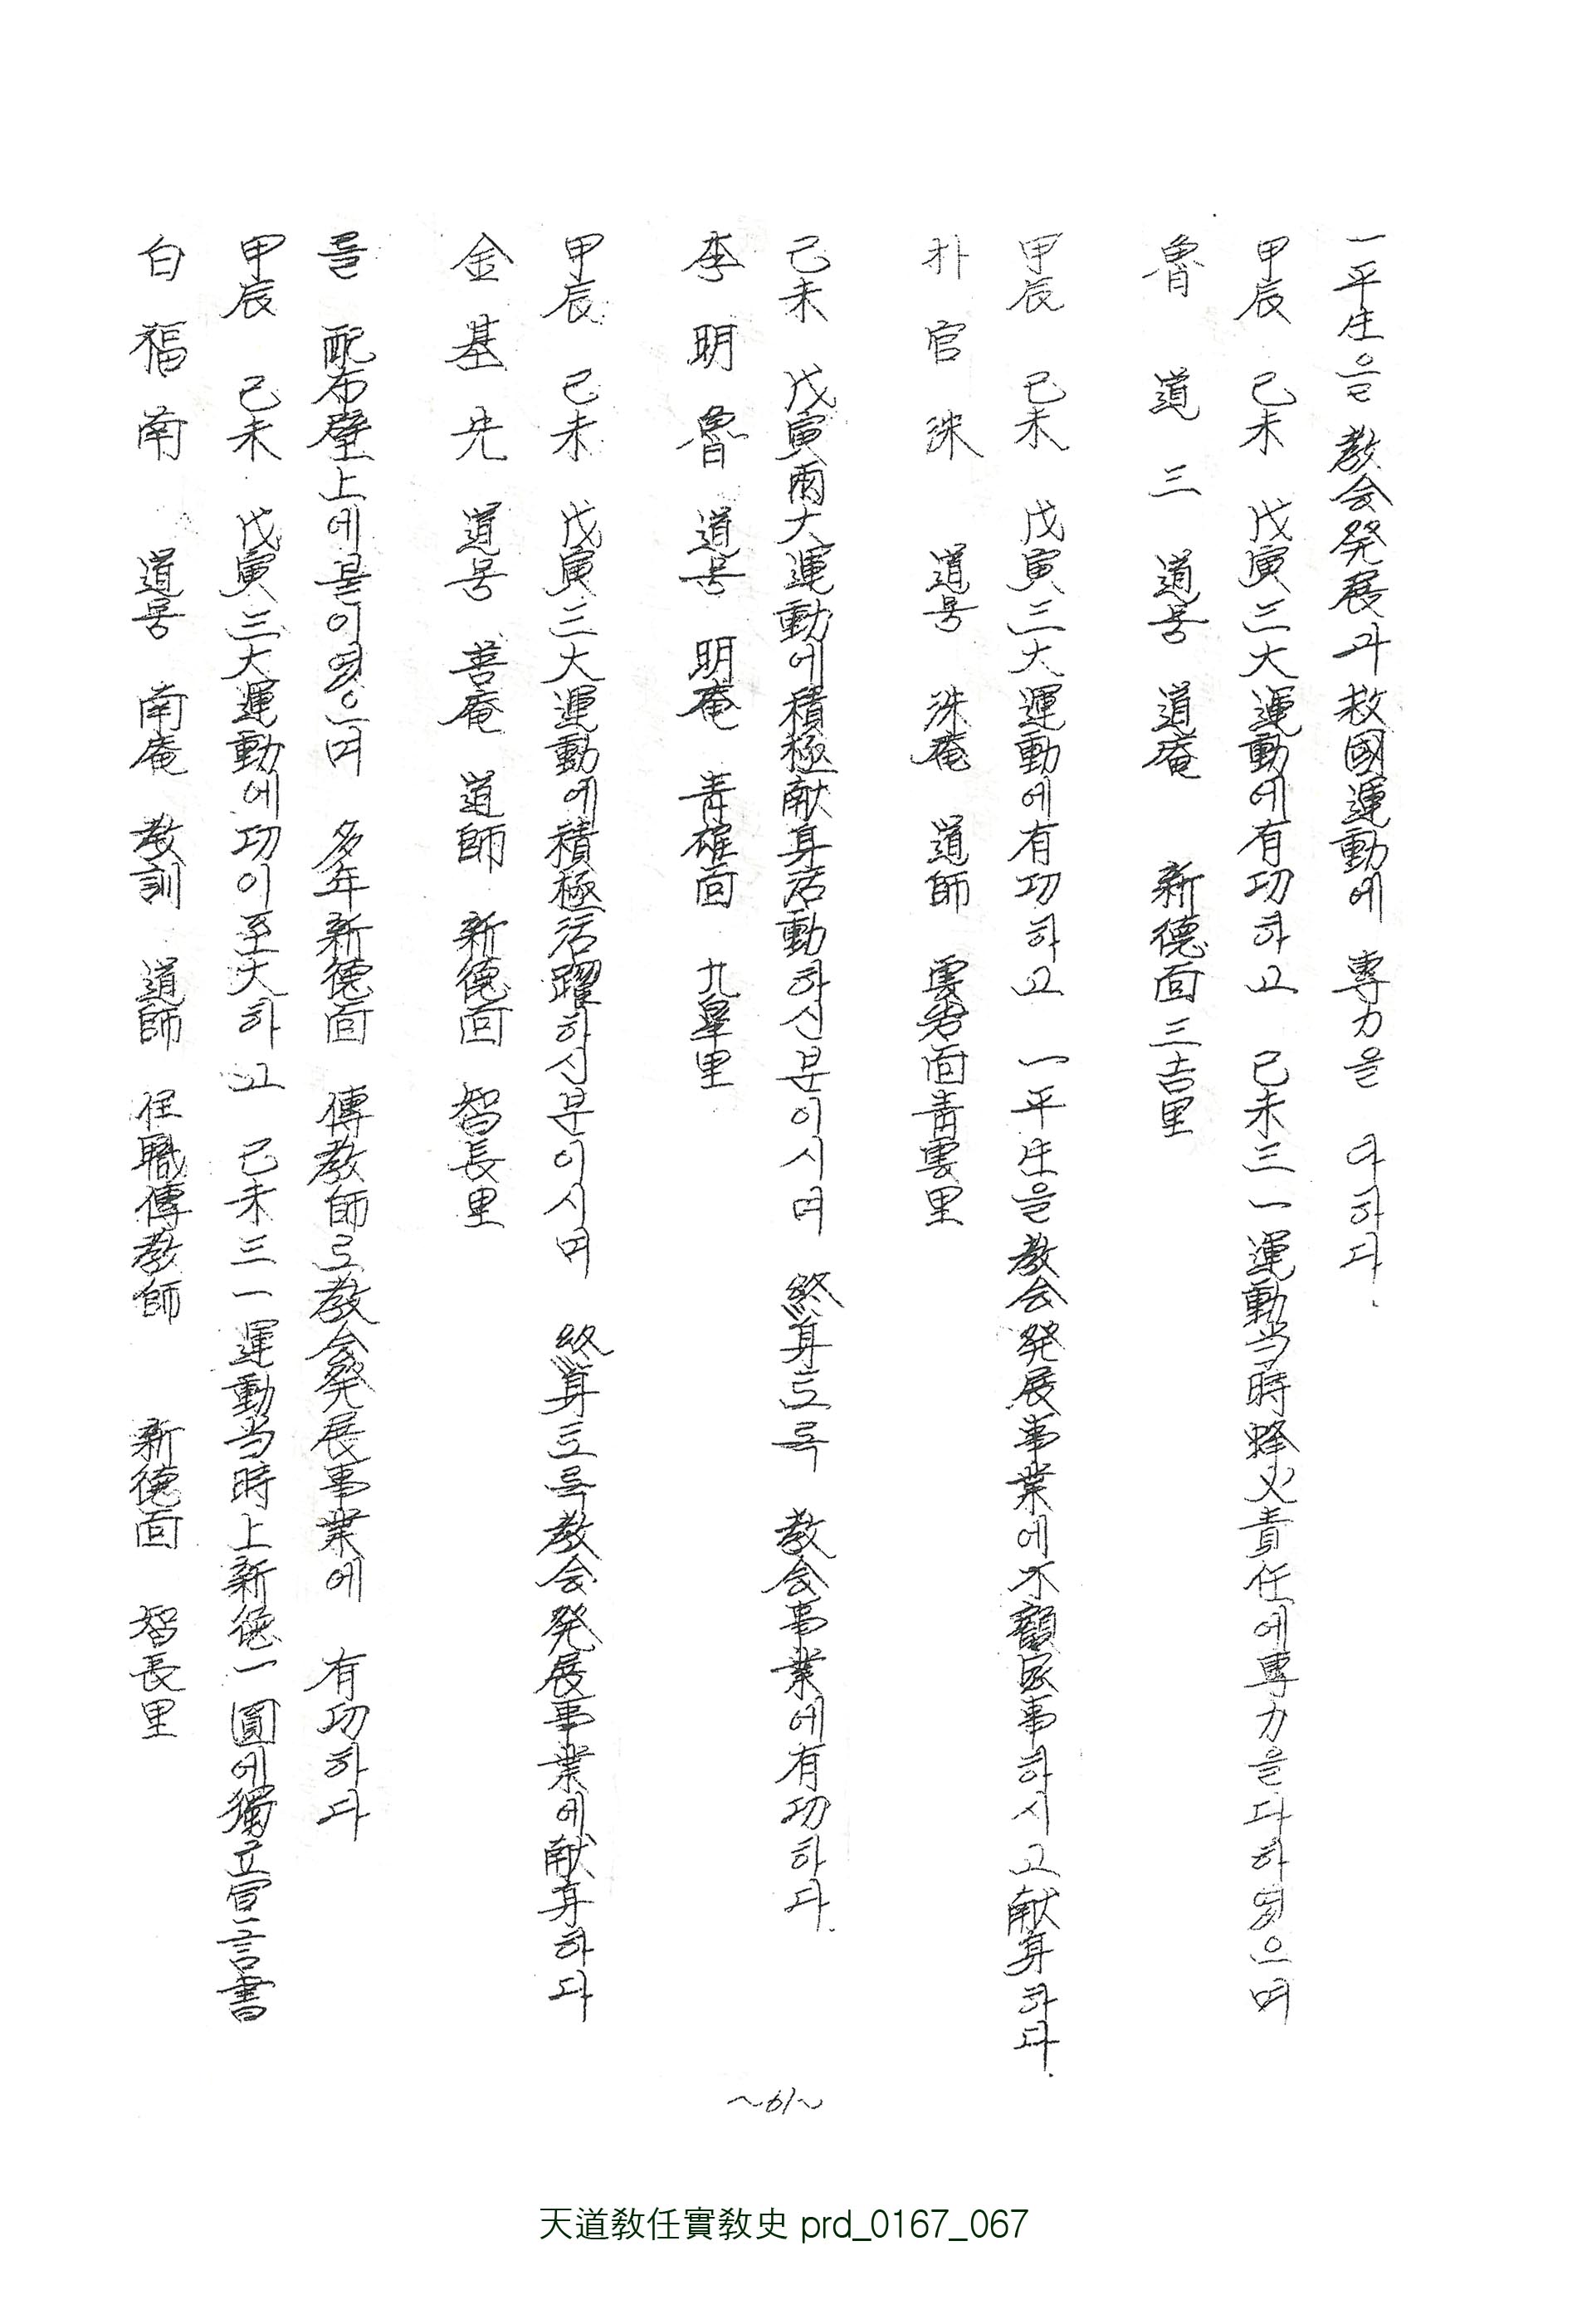 一平生을 敎会発展과 救國運動에 專力을 다하다.
甲辰 己未 戊寅三大運動에有功하고 己未三一運動当時烽火責任에專力을다하엿으며
魯道三 道号 道庵 新德面三吉里
甲辰 己未 戊寅三大運動에有功하고 一平生을敎会発展事業에不顧家事하시고献身하다.
朴官洙 道号 洙庵 道師 雲岩面靑雲里
己未 戊寅兩大運動에積極献身活動하신분이시며 終身토록 敎会事業에有功하다.
李明魯 道号 明庵 靑雄面 九皐里
甲辰 己未 戊寅三大運動에積極活躍하신분이시며 終身토록敎会発展事業에献身하다
金基先 道号 善庵 道師 新德面 智長里
를 配布壁上에붙이엿으며 多年新德面 傳敎師로敎会発展事業에 有功하다
甲辰 己未 戊寅三大運動에功이至大하고 己未三一運動当時上新德一圓에獨立宣言書
白福南 道号 南庵 敎訓 道師 任職傳敎師 新德面 智長里
~61~
天道敎任實敎史 prd_0167_067